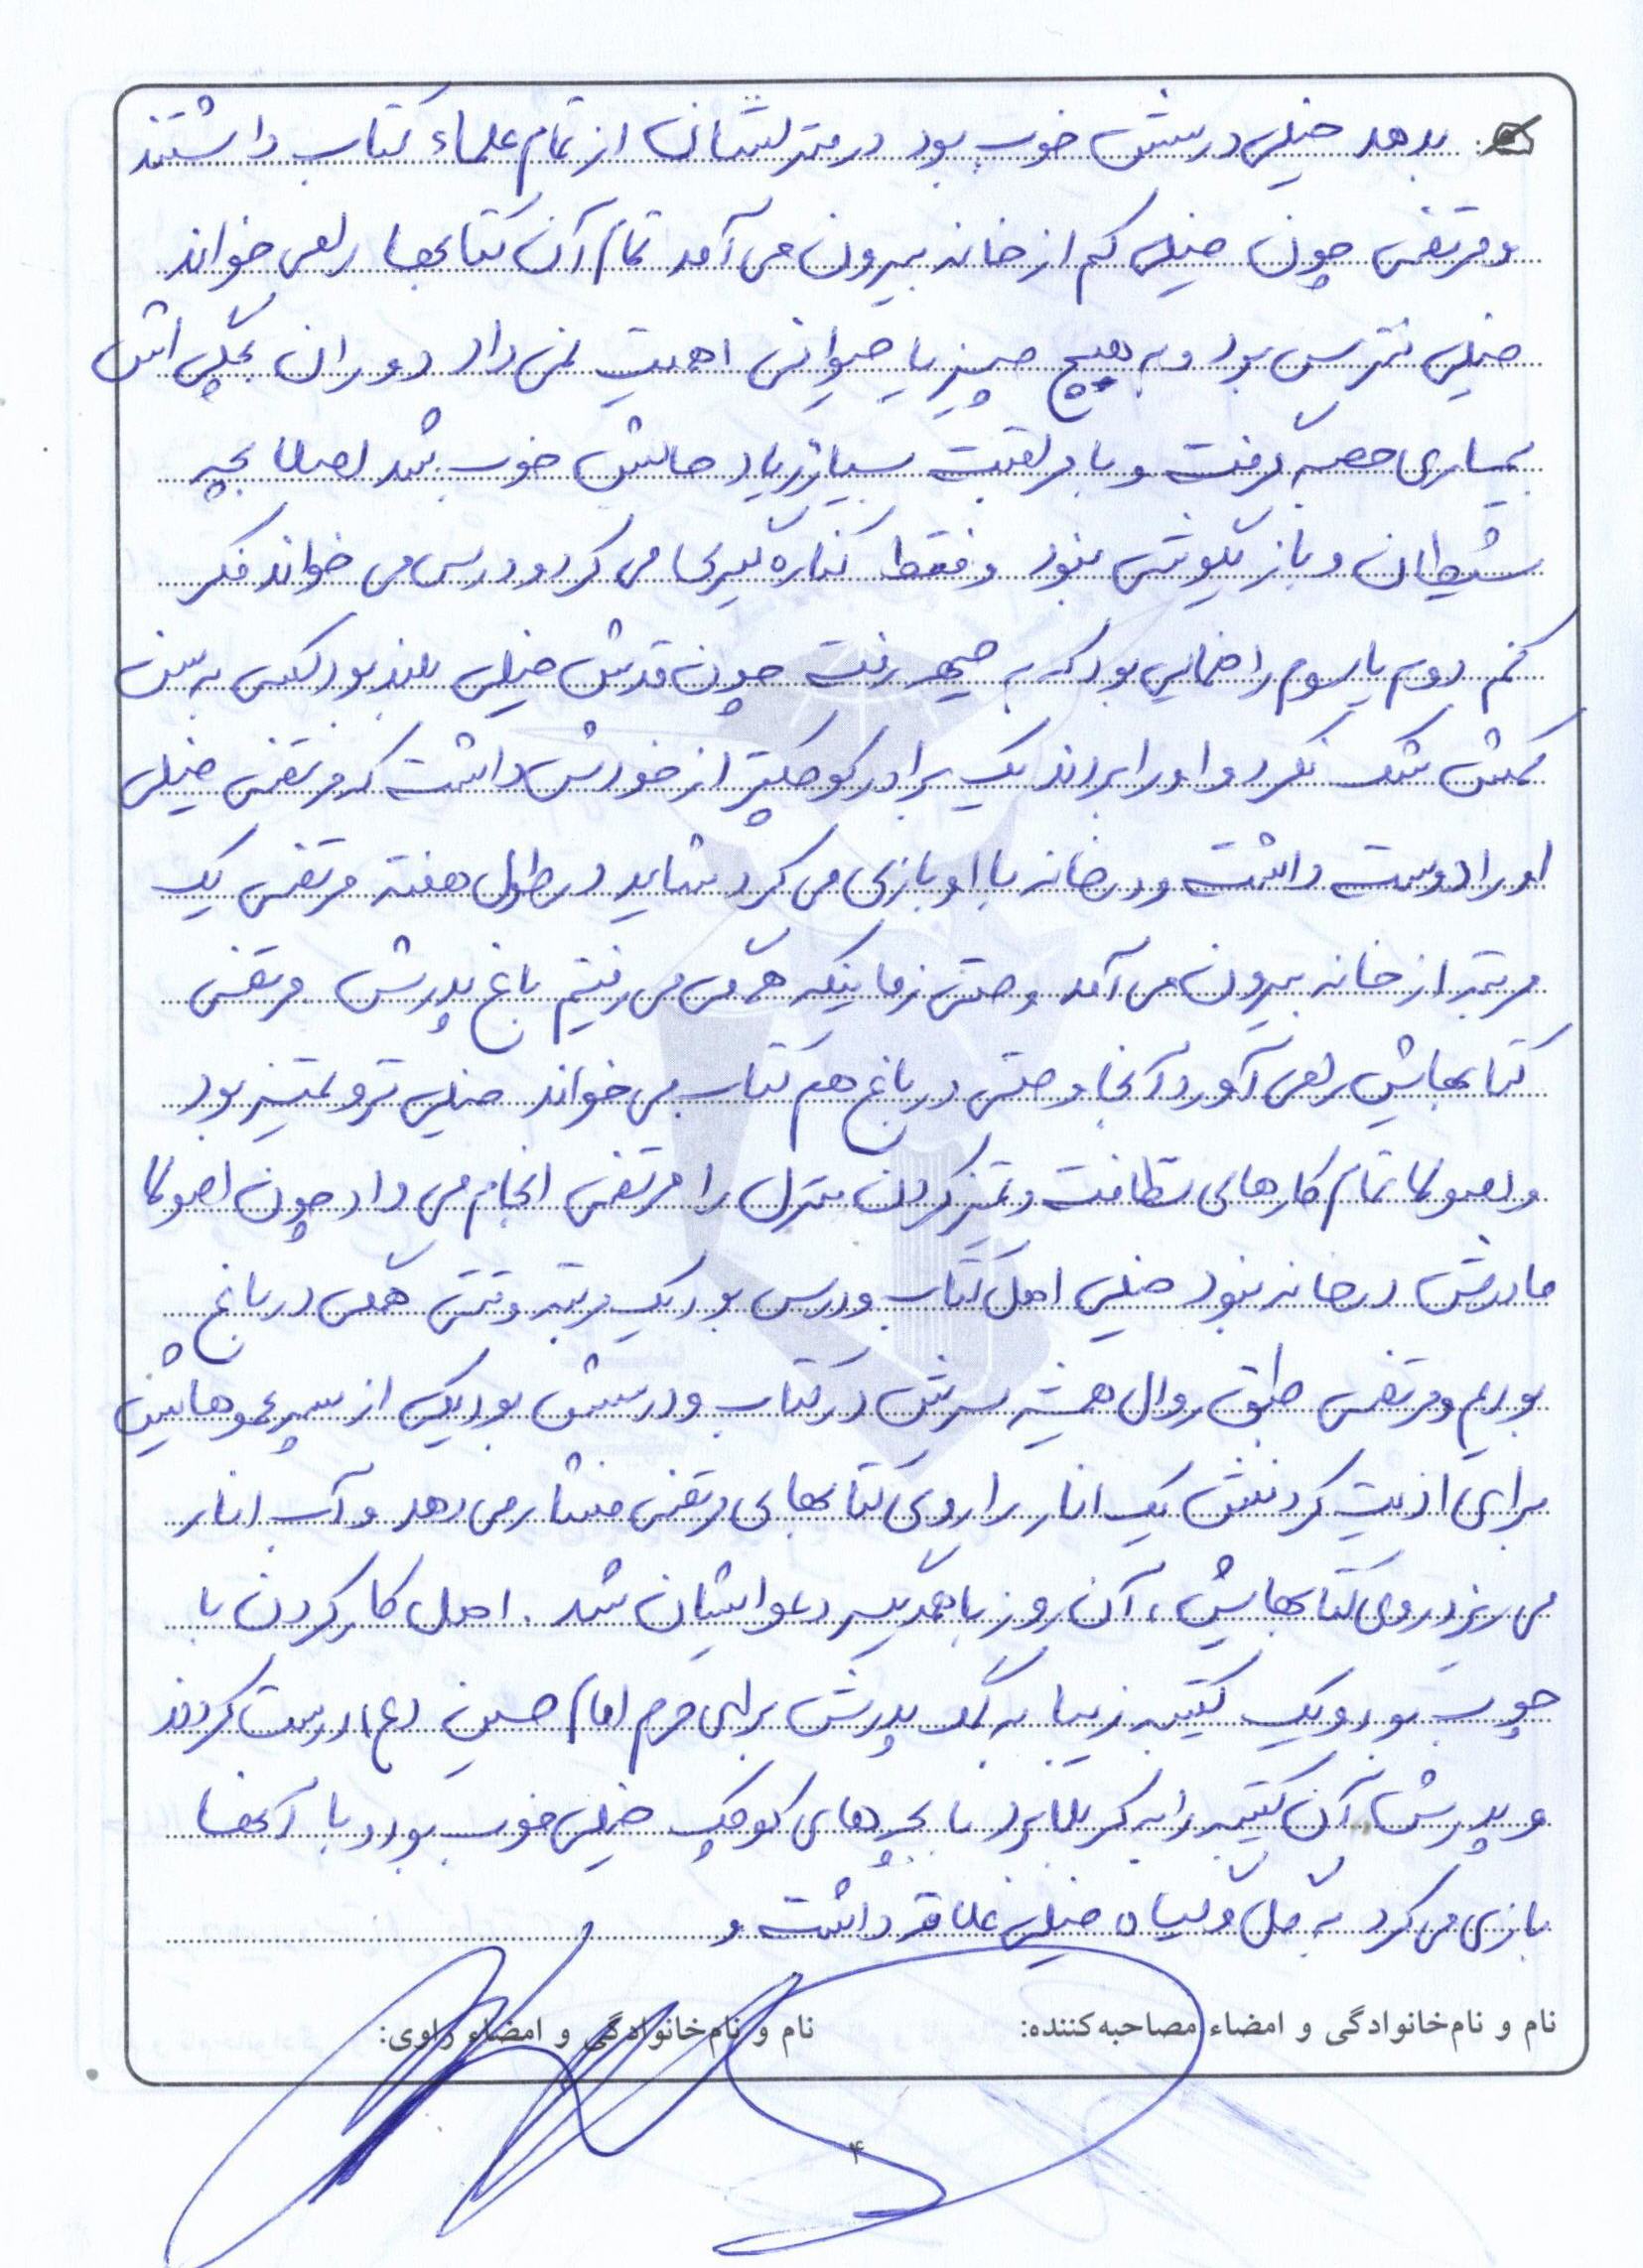 بدهد خیلی درسش خوب بود در منزلشان از تمام علماء کتاب داشتند
و مرتضی چون خیلی کم از خانه بیرون می آمد تمام آن کتابها را می خواند
خیلی نترس بود و به هیچ چیز یا حیوانی اهمیت نمی داد دوران بچگی اش
بیماری حصبه گرفت و با مراقبت بسیار زیاد حالش خوب شد اصلا بچه
شیطان و بازیگوشی نبود و فقط کناره گیری می کرد و درس می خواند فکر
کنم دوم یا سوم راهنمایی بود که به جبهه رفت چون قدش خیلی بلند بود کسی به سن
کمش شک نکرد و او را بردند یک برادر کوچکتر از خودش داشت که مرتضی خیلی
او را دوست داشت و در خانه با او بازی می کرد شاید در طول هفته مرتضی یک
مرتبه از خانه بیرون می آمد و حتی زمانیکه همگی می رفتیم باغ پدرش مرتضی
کتابهایش را می آورد آنجا و حتی در باغ هم کتاب می خواند خیلی تر و تمیز بود
و معمولا تمام کارهای نظافت و تمیز کردن منزل را مرتضی انجام می داد چون اصولا
مادرش در خانه نبود خیلی اهل کتاب و درس بود یک مرتبه وقتی همگی در باغ
بودیم و مرتضی طبق روال همیشه سرش در کتاب و درسش بود یکی از پسر عموهایش
برای اذیت کردنش یک انار را روی کتابهای مرتضی فشار می دهد و آب انار
می ریزد روی کتابهایش، آن روز با همدیگر دعوایشان شد. اهل کار کردن با
چوب بود و یک کتیبه زیبا به کمک پدرش برای حرم امام حسین (ع) درست کردند
و پدرش آن کتیبه را به کربلا برد با بچه های کوچک خیلی خوب بود و با آنها
بازی می کرد به گل و گیاه خیلی علاقه داشت و
نام و نام‌خانوادگی و امضاء مصاحبه‌کننده: نام و نام‌خانوادگی و امضاء راوی:
۴